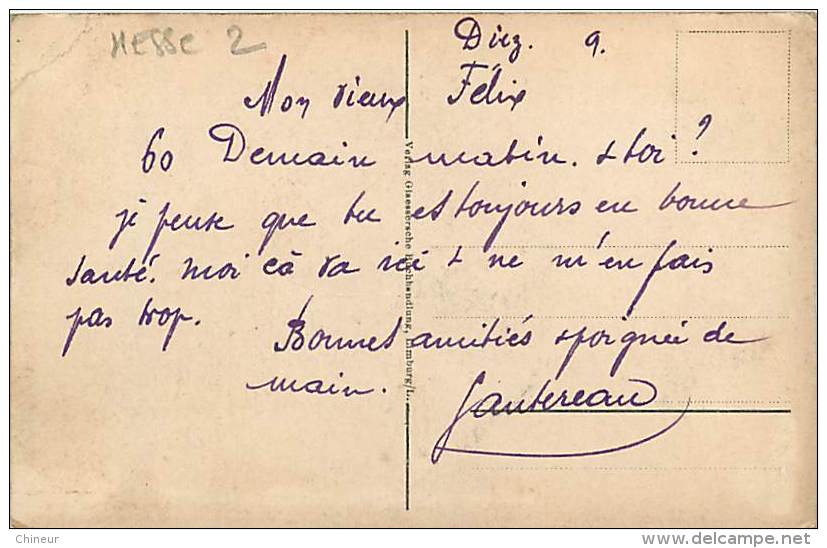 HESSE 2
Diez. 9.
Mon vieux Félix
60 Demain matin. & toi ?
je pense que tu es toujours en bonne
santé. moi ça va ici & ne m'en fais
pas trop.
Bonnes amitiés & poignée de
main.
Gautereau
Verlag Glaessersche Buchhandlung, Limburg/L.
Chineur
delcampe.net